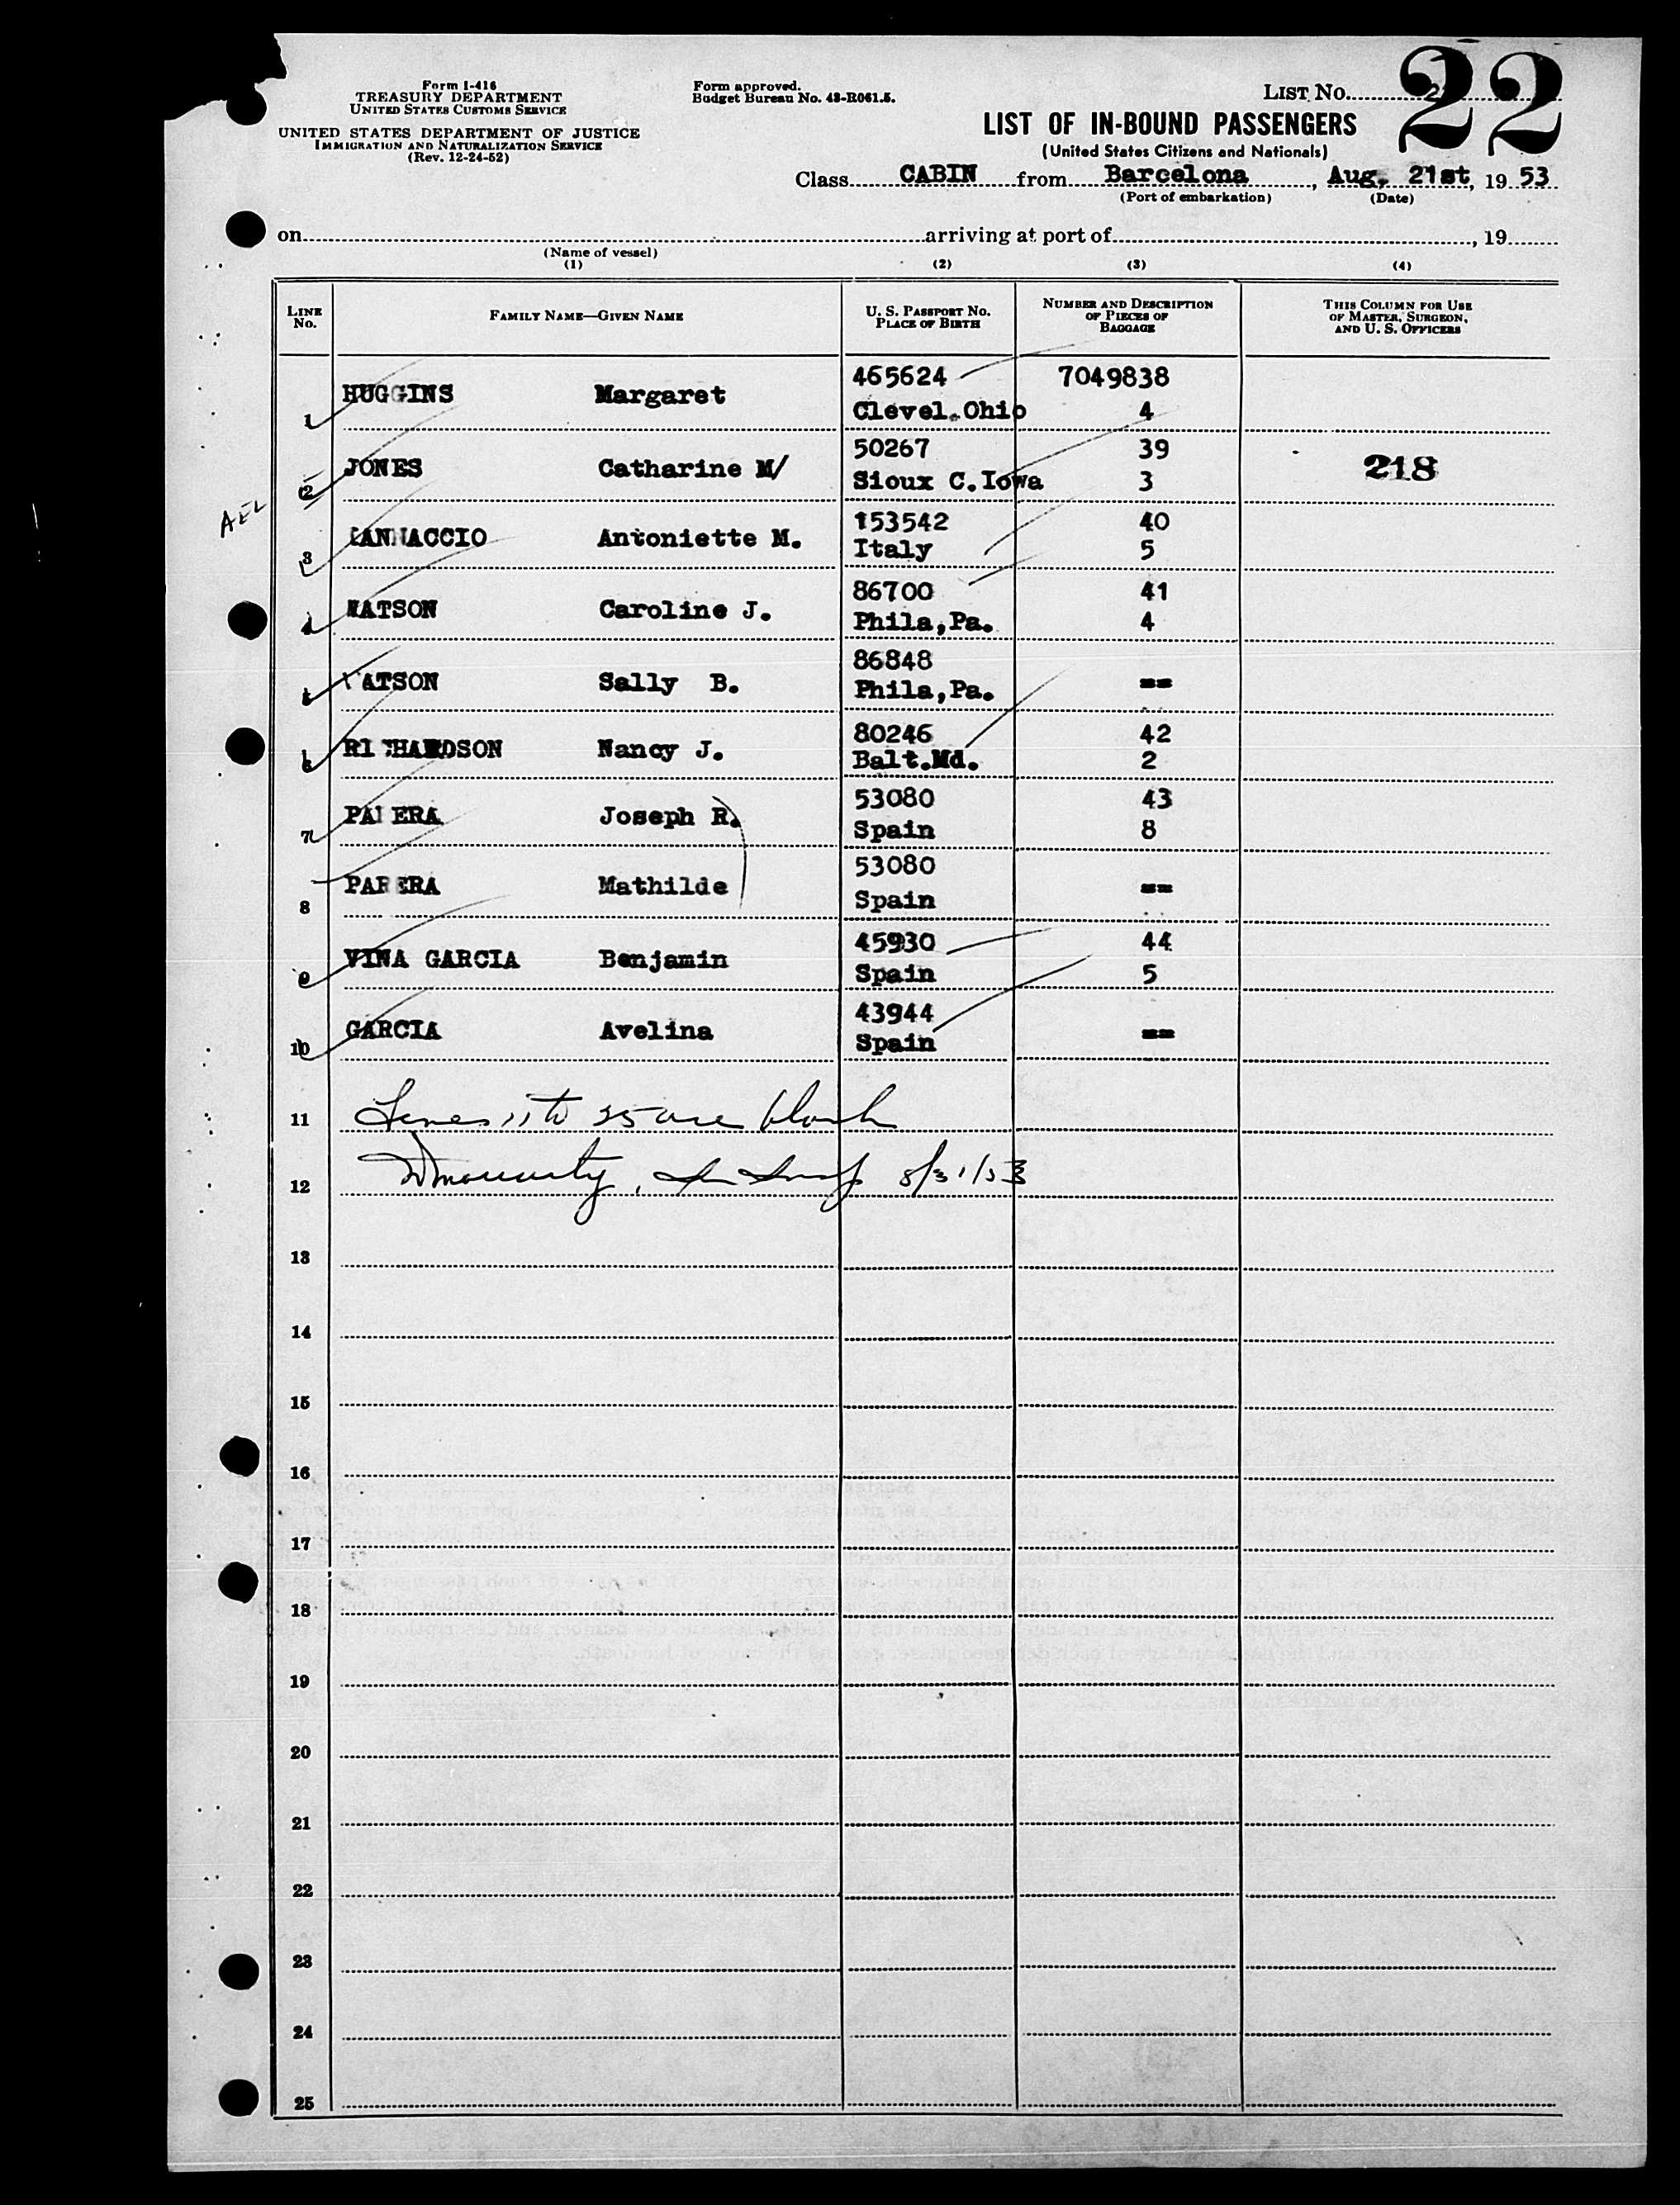 22
Form I-416
TREASURY DEPARTMENT
UNITED STATES CUSTOMS SERVICE
UNITED STATES DEPARTMENT OF JUSTICE
IMMIGRATION AND NATURALIZATION SERVICE
(Rev. 12-24-52)
Form approved.
Budget Bureau No. 43-R061.5.
LIST No. 2
LIST OF IN-BOUND PASSENGERS
(United States Citizens and Nationals)
Class CABIN from Barcelona, Aug. 21st, 19 53
(Port of embarkation) (Date)
on arriving at port of , 19
(Name of vessel)
(1) (2) (3) (4)
LINE No. FAMILY NAME—GIVEN NAME U. S. PASSPORT NO. PLACE OF BIRTH NUMBER AND DESCRIPTION OF PIECES OF BAGGAGE THIS COLUMN FOR USE OF MASTER, SURGEON, AND U. S. OFFICERS
465624 7049838
1 HUGGINS Margaret Clevel.Ohio 4
50267 39
2 JONES Catharine M/ Sioux C.Iowa 3 218
AEL
153542 40
3 Antoniette M. Italy 5
86700 41
4 WATSON Caroline J. Phila,Pa. 4
86848
5 WATSON Sally B. Phila,Pa. --
80246 42
6 RICHARDSON Nancy J. Balt.Md. 2
53080 43
7 PARERA Joseph R. Spain 8
53080
8 PARERA Mathilde Spain --
45930 44
9 VINA GARCIA Benjamin Spain 5
43944
10 GARCIA Avelina Spain --
11 Lines 11 to 25 are blank
12 8/31/53
13
14
15
16
17
18
19
20
21
22
23
24
25